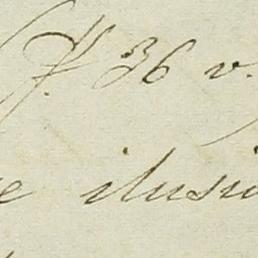 f. 36 v.
e ilusi